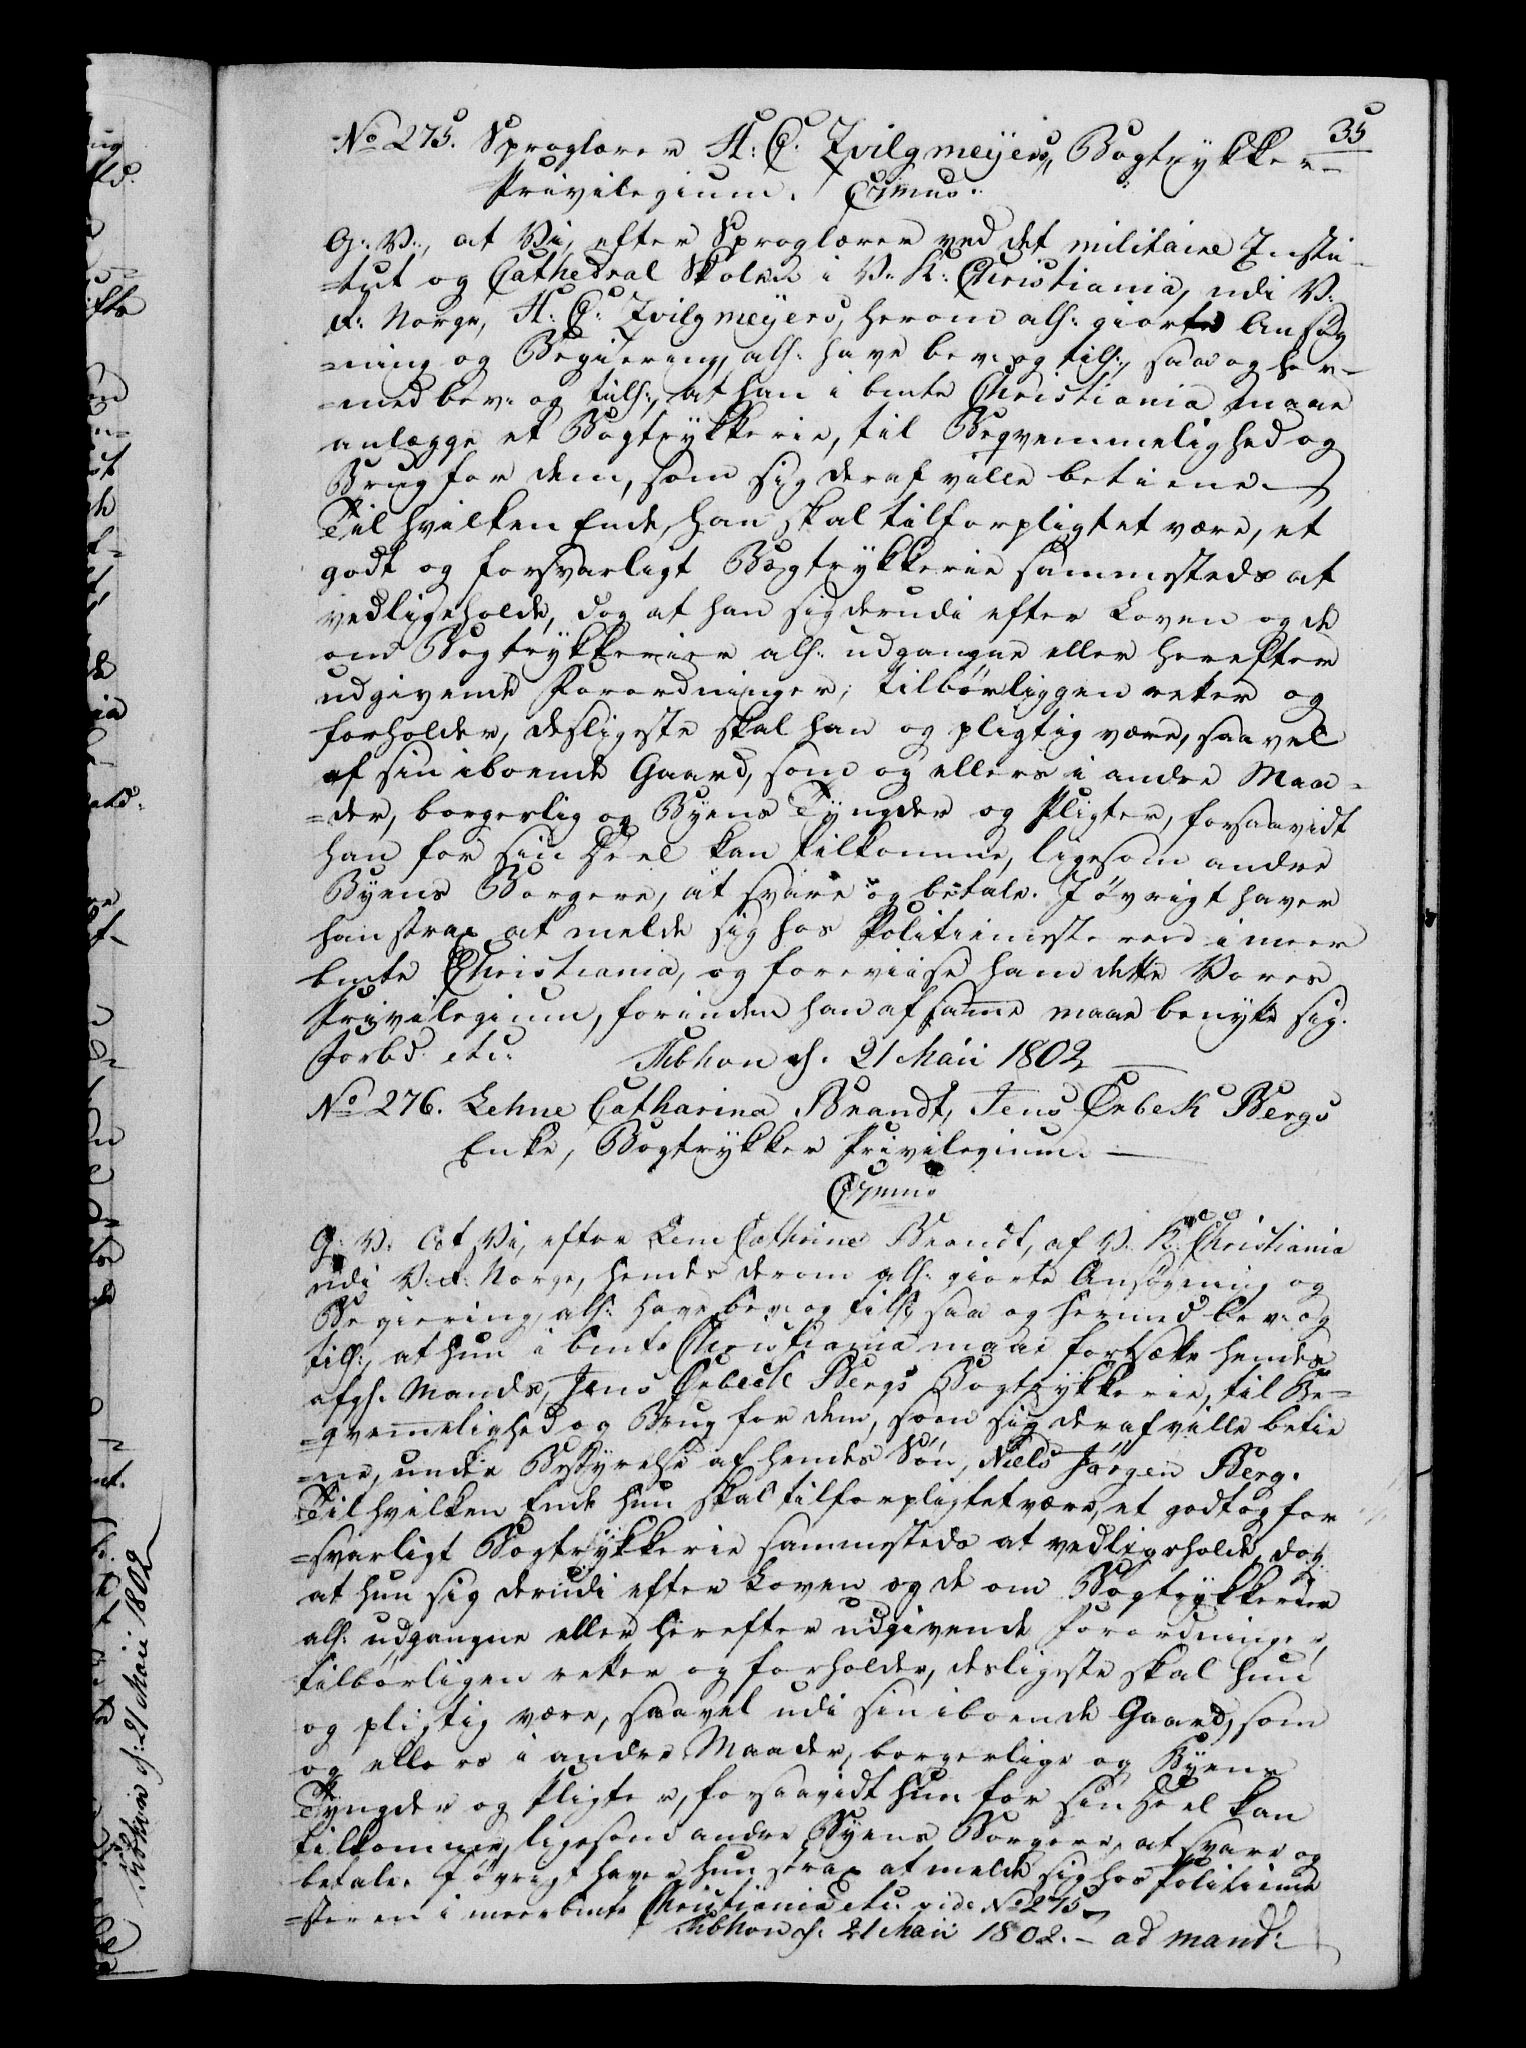 35
No 275. Sproglærer H: C. Zvilgmeyers, Bogtrykker-
Privilegium. C7mus..
G: V:, at Vi, efter Sproglærer ved det militaire Insti-
=tut og Cathedral Skolen i V. K: Christiania, udi V:
R: Norge, H: C: Zvilgmeyers, herom alh: giorte Ansøg
=ning og Begiering, alh: have bev: og tilh:, saa og her-
=med bev: og tilh:, at han i bmte Christiania maae
anlægge et Bogtrykkerie, til Beqvemmelighed og
Brug for dem, som sig deraf ville betiene.
Til hvilken Ende, han skal tilforpligtet være, et
godt og forsvarligt Bogtrykkerie sammesteds at
vedligeholde, dog at han sig derudi efter Loven og de
om Bogtrykkerier alh: udgangne eller herefter
udgivende Forordninger, tilbørliggen reter og
forholder, desligeste skal han og pligtig være, saavel
af sin iboende Gaard, som og ellers i andre Maa-
=der, borgerlig og Byens Tyngder og Pligter, forsaavidt
han for sin Deel kan tilkomme, ligesom andre
Byens Borgere, at svare og betale. I øvrigt haver
han strax at melde sig hos Politiemesteren i meer
bmte Christiania, og foreviise ham dette Vores
Privilegium, forinden han af samme maae benytte sig.
Forbd. etc: Kbhvn d. 21 Maii 1802
No 276. Lehne Catharina Brandt, Jens Ørbek Bergs
Enke, Bogtrykker Privilegium.
C7mus
G: V: At Vi, efter Lene Cathrine Brandt, af V. K: Christiania
udi V: R: Norge, hendes derom alh: giorte Ansøgning og
Begiering, alh: have bev: og tilh: saa og hermed bev: og
tilh:, at hun i bmte Christiania maae fortsætte hendes
afgh. Mands, Jens Ørbeck Bergs Bogtrykkerie, til Be-
=qvemelighed og Brug for dem, som sig deraf ville betie
=ne, under Bestyrelse af hendes Søn, Niels Jørgen Berg.
Til hvilken Ende hun skal tilforpligtet være, et godt og for
=svarligt Bogtrykkerie sammesteds at vedligeholde, dog
at hun sig derudi efter Loven og de om Bogtrykkerier
alh: udgangne eller herefter udgivende Forordninger,
tilbørligen reter og forholder, desligeste skal hun
og pligtig være, saavel udi sin iboende Gaard, som
og ellers i andre Maader, borgerlige og Byens
Tyngder og Pligter, forsaavidt hun for sin Deel kan
tilkomme, ligesom andre Byens Borgere, at svare og
betale. I øvrigt haver hun strax at melde sig hos Politieme
=steren i meerbmte Christiania etc: vide No 275
Kbhvn d. 21 Maii 1802. - ad mand:
Kbhvn d: 21 Maii 1802